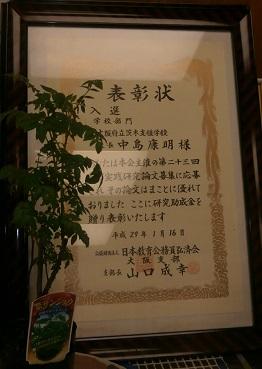 表彰状
入選
学校部門
大阪府立茨木支援学校
中島康明様
たは本会主催の第二十三回
実践研究論文募集に応募
れその論文はまことに優れて
おりました ここに研究助成金を
贈り表彰いたします
平成29年1月16日
日本教育公務員弘済会
大阪支部
支部長 山口成幸